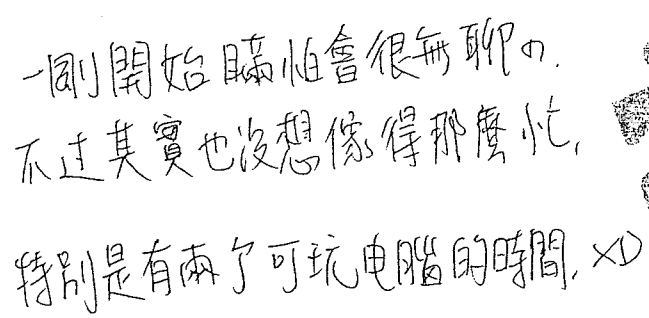 一剛開始瞞怕會很無聊の.
不过其實也沒想像得那麼忙,
特別是有兩了可玩电腦的時間, XD